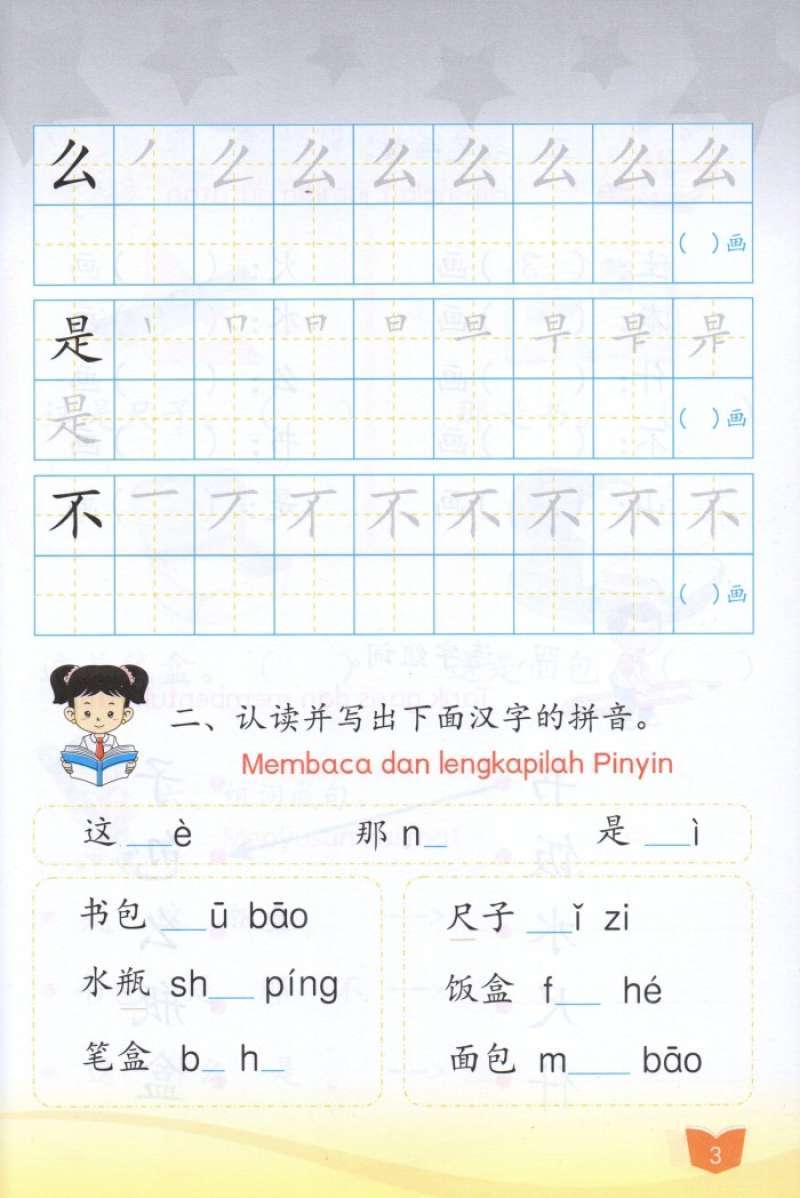 么 丿 么 么 么 么 么 么 么
( )画
是 丨 冂 日 日 旦 早 早 昰
是 ( )画
不 一 丆 不 不 不 不 不 不
( )画
二、认读并写出下面汉字的拼音。
Membaca dan lengkapilah Pinyin
这 ___è 那 n_ 是 ___ì
书包 ___ū bāo
水瓶 sh___ píng
笔盒 b_ h_
尺子 ___ǐ zi
饭盒 f___ hé
面包 m____ bāo
3